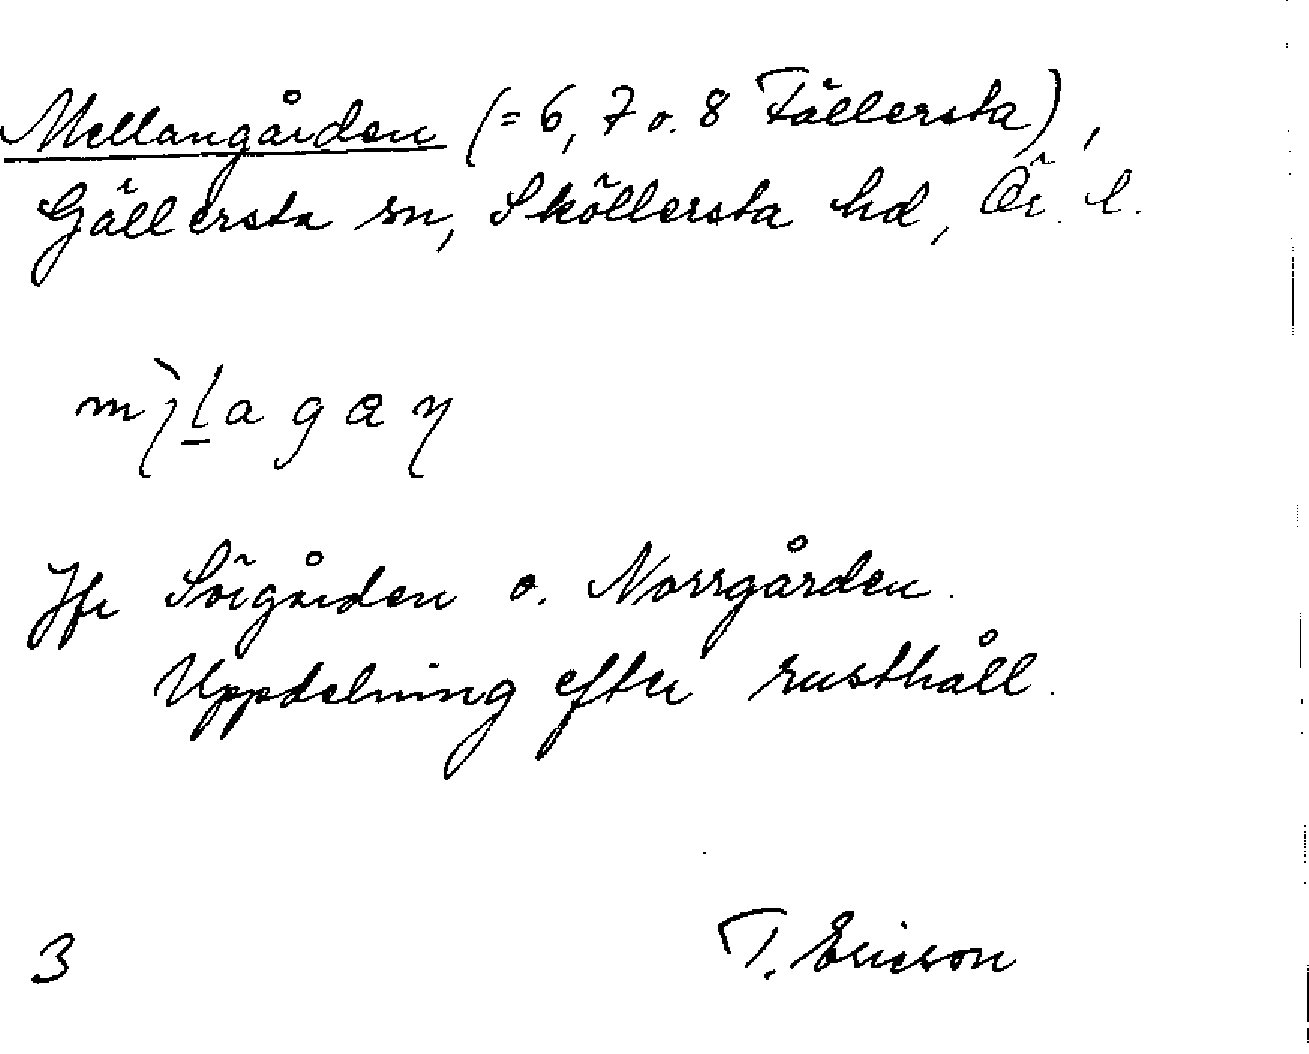 Mellangården (= 6, 7 o. 8 Fällersta),
Gällersta sn, Sköllersta hd, Ör. l.
Jfr Sörgården o. Norrgården.
Uppdelning efter rusthåll.
3
T. Ericson